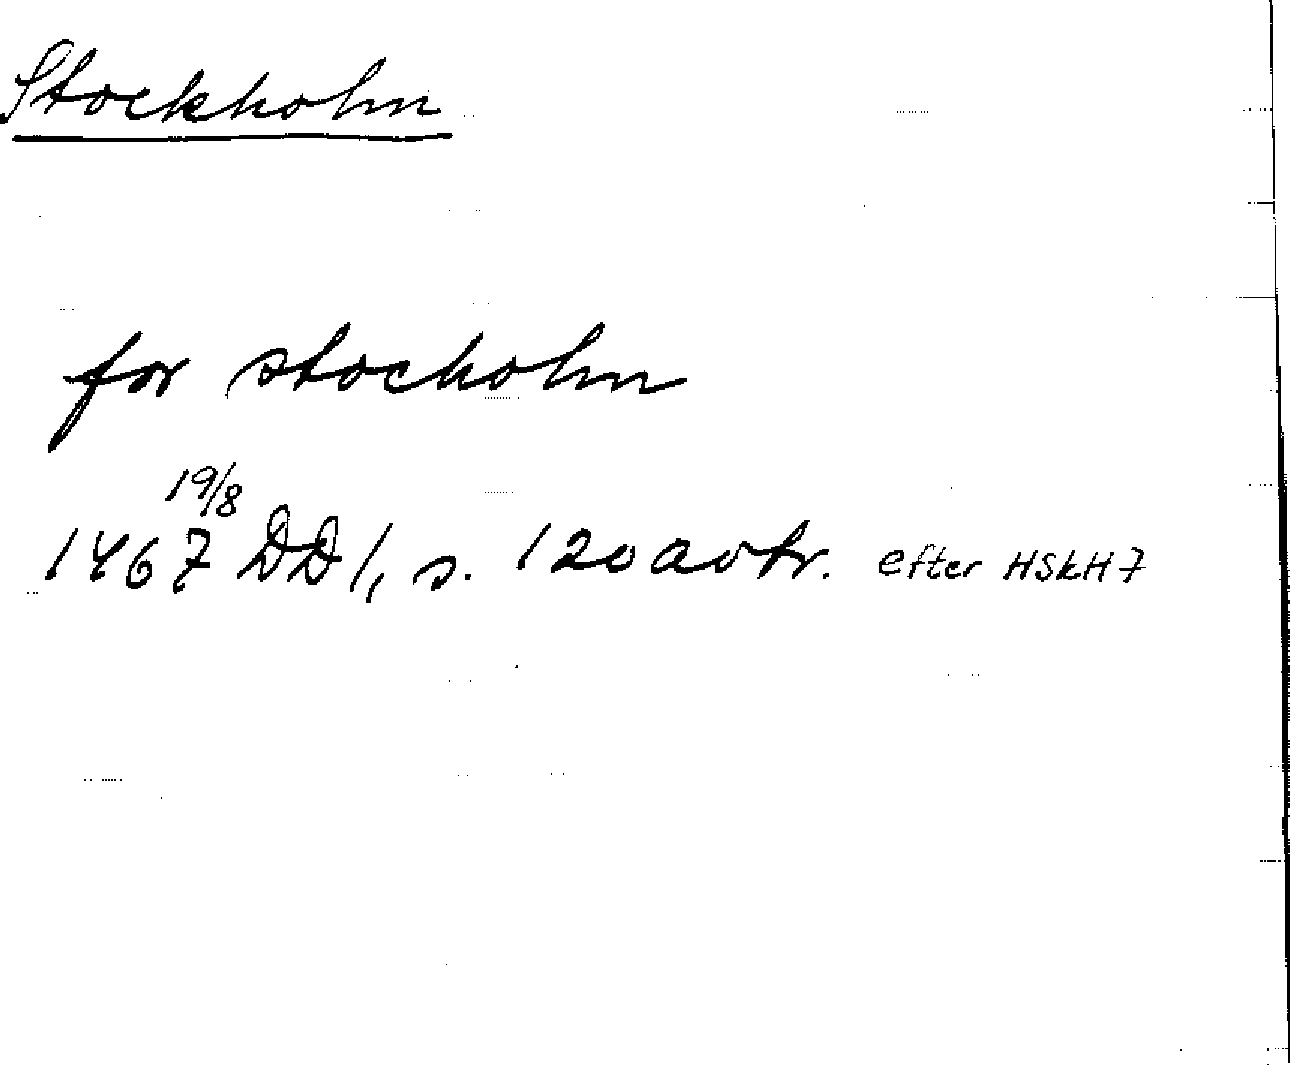 Stockholm
for stocholm
19/8
1467 DD 1, s. 120 avtr. efter HSkH 7